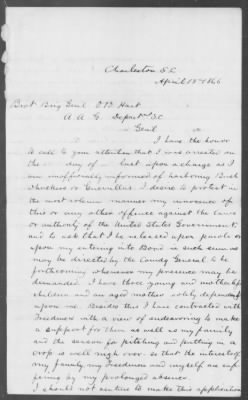 Charleston S.C.
April 18th 1866
Brvt Brig Genl O D Hart
A A G Depart S.C.
Genl
I have the honor
to call to your attention that I was arrested on
the day of last upon a charge as I
am unofficially informed of harboring Bush
whackers or Guerrillas I desire to protest in
the most solemn manner my innocence of
this or any other offence against the laws
or authority of the United States Government,
and to ask that I be released upon parole or
upon my entering into Bond in such sum as
may be directed by the Comdg General to be
forthcoming whenever my presence may be
demanded. I have three young and motherless
children and an aged mother solely dependent
upon me. Besides this I have contracted with
Freedmen with a view of endeavoring to make
a support for them as well as my family
and the season for pitching and putting in a
crop is well nigh over so that the interests of
my family, my Freedmen and myself are suf-
fering by my prolonged absence
I should not venture to make this application